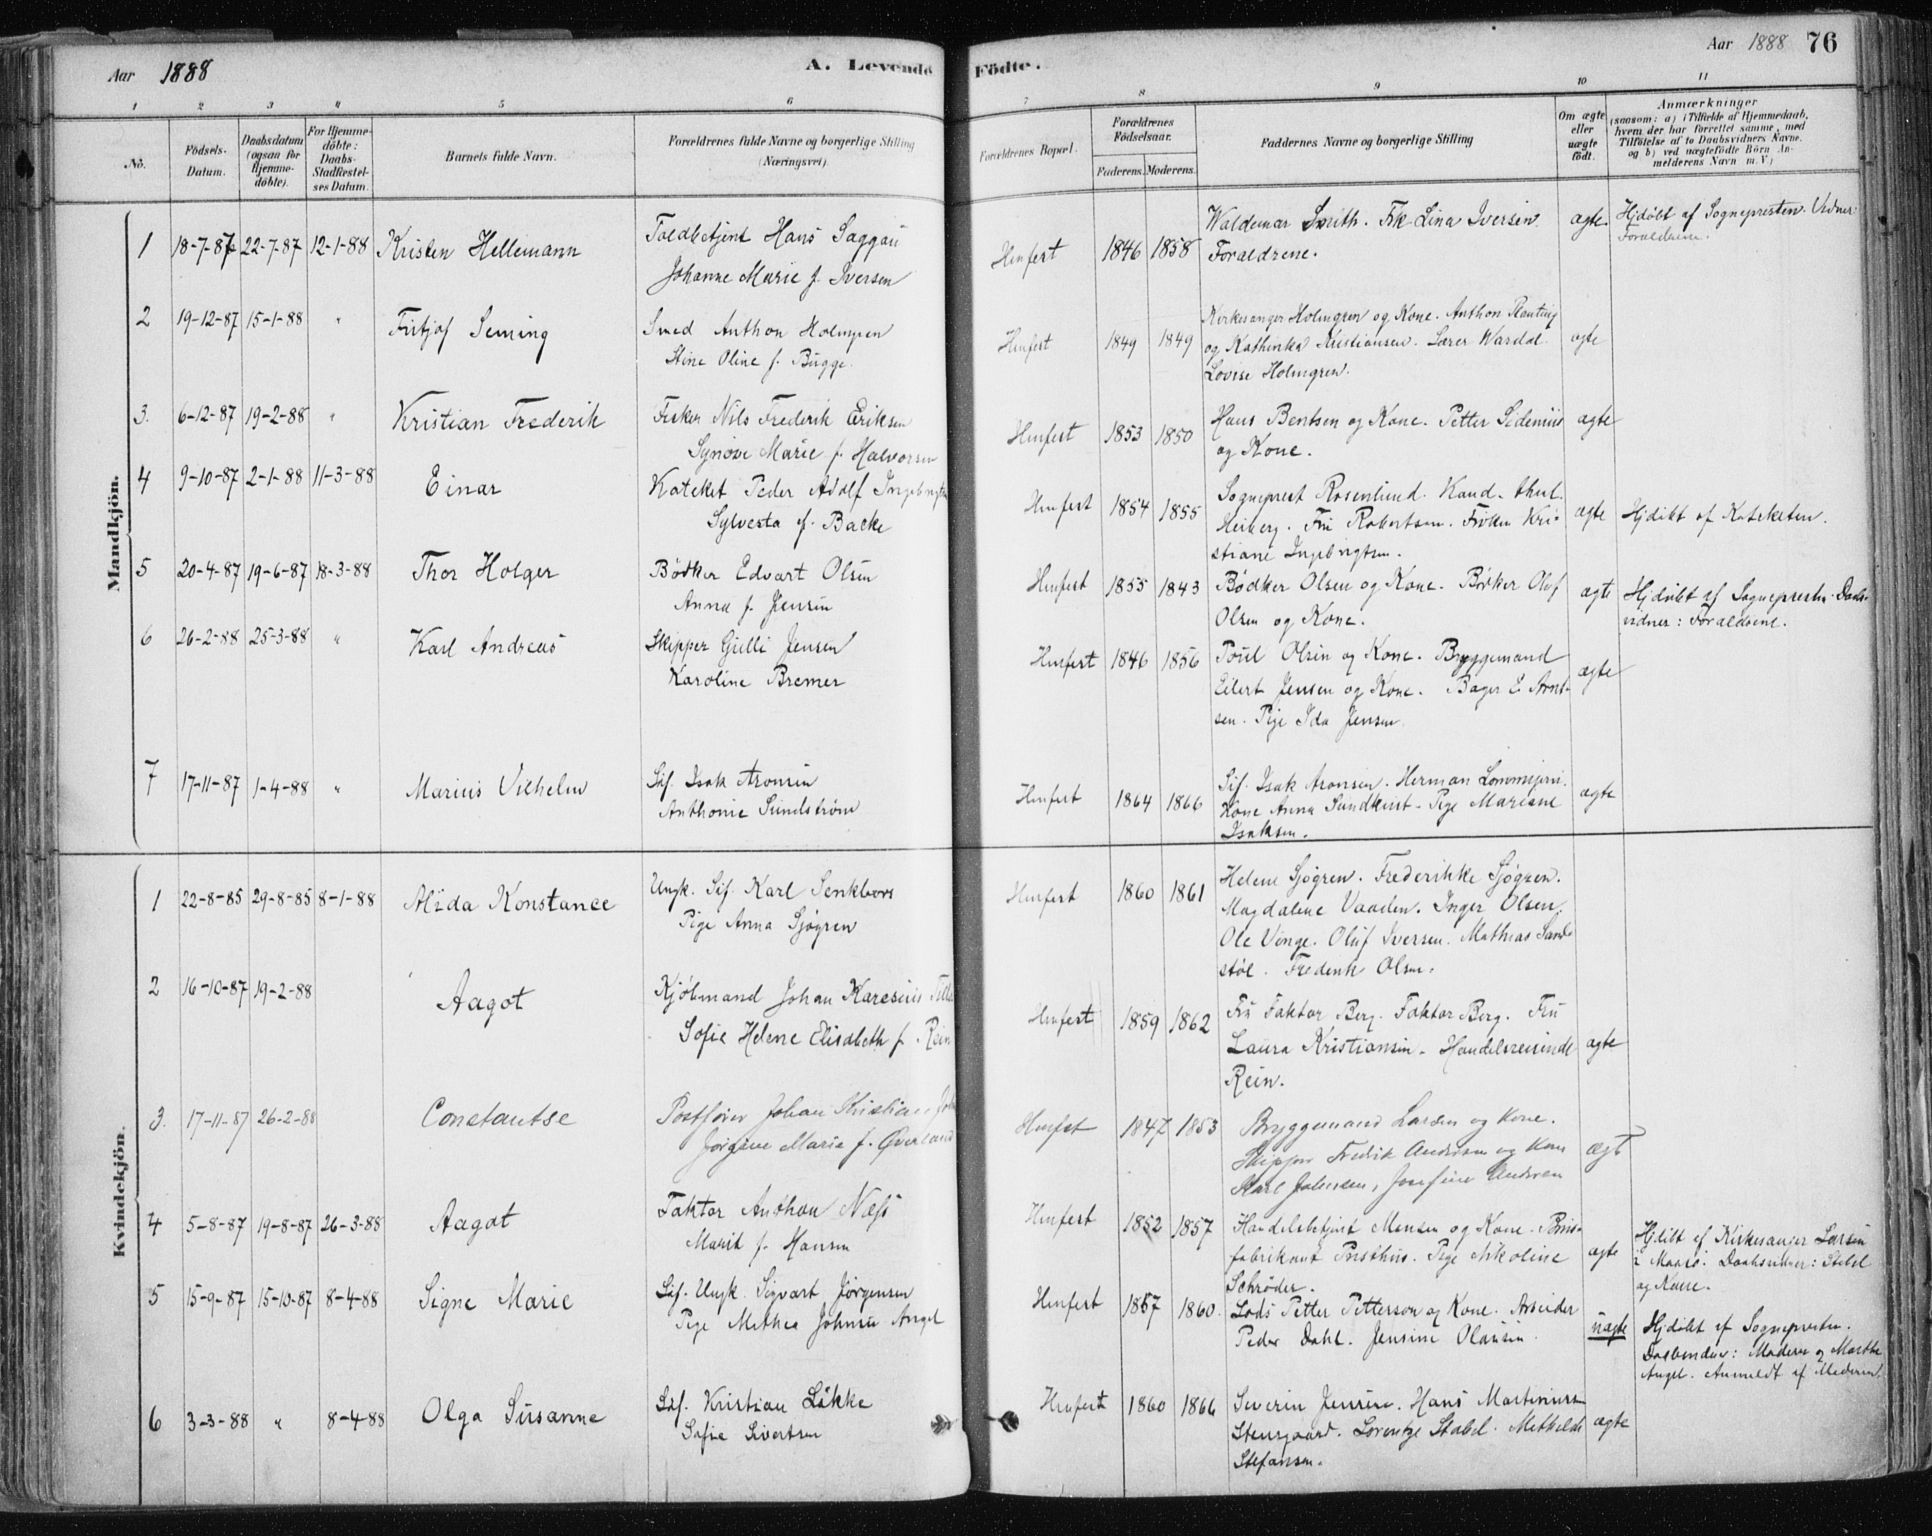 Aar 1888
A. Levende
Födte.
Aar 1888 76
1 2 3 4 5 6 7 8 9 10 11
No.
Födsels-
Datum.
Daabsdatum
(ogsaa for
Hjemme-
döbte).
For Hjemme-
döbte:
Daabs-
Stadfæstel-
ses Datum.
Barnets fulde Navn.
Forældrenes fulde Navne og borgerlige Stilling
(Næringsvei).
Forældrenes Bopæl.
Forældrenes
Födselsaar.
Faderens. Moderens.
Faddernes Navne og borgerlige Stilling
Om ægte
eller
uægte
födt.
Anmærkninger
(saasom: a) i Tilfælde af Hjemmedaab,
hvem der har forrettet samme, med
Tilföielse af to Daabsvidners Navne.
og b) ved uægtefödte Börn An-
melderens Navn m. V.)
Mandkjön.
1 18-7-87 22-7-87 12-1-88 Kristen Hellemann
Toldbetjent Hans Saggau
Johanne Marie f. Iversen
Hmfest 1846 1858
Waldemar Smith. Frk Lina Iversen
Forældrene.
ægte
Hjdöbt af Sognepresten. Vidner:
Forældrene.
2 19-12-87 15-1-88 " Fritjof Seming
Smed Anthon Holmgren
Stine Oline f. Bugge.
Hmfest 1849 1849
Kirkesanger Holmgren og Kone. Anthon
og Kathinka Kristiansen. Lærer Wardal.
Lovise Holmgren.
ægte
3. 6-12-87 19-2-88 " Kristian Frederik
Fisker Nils Frederik Eriksen
Synøve Marie f. Halvorsen
Hmfest 1853 1850
Hans Bentsen og Kone. Petter Sidenius
og Kone.
ægte
4 9-10-87 2-1-88 11-3-88 Einar
Kateket Peder Adolf Ingebrigtsen
Sylvesta f. Backe
Hmfest 1854 1855
Sogneprest Rosenlund. Kand. theol.
Heiberg. Fru Robertson. Frøken Kri-
stiane Ingebrigtsen.
ægte
Hjdöbt af Kateketen.
5 20-4-87 19-6-87 18-3-88 Thor Holger
Bødker Edvart Olsen
Anna f. Jensen
Hmfest 1855 1843
Bødker Olsen og Kone. Bødker Oluf
Olsen og Kone.
ægte
Hjdøbt af Sognepresten. Daabs-
vidner: Forældrene.
6 26-2-88 25-3-88 " Karl Andreas
Skipper Gjelli Jensen
Karoline Bremer
Hmfest 1846 1856
Poul Olsen og Kone. Bryggemand
Eilert Jensen og Kone. Bager E. Arnt-
sen. Pige Ida Jensen.
ægte
7 17-11-87 1-4-88 " Marius Vilhelm
Sjf. Isak Aronsen
Anthonie Sundstrøm
Hmfest 1864 1866
Sjf. Isak Aronsen. Herman
Kone Anna Sundkvist. Pige Mariane
Isaksen.
ægte
Kvindekjön.
1 22-8-85 29-8-85 8-1-88 Alida Konstance
Ungk. Sjf. Karl
Pige Anna Sjøgren
Hmfest 1860 1861
Helene Sjøgren. Frederikke Sjøgren.
Magdalene Vaaden. Inger Olsen.
Ole Vinge. Oluf Iversen. Mathias Sand-
støl. Frederik Olsen.
2 16-10-87 19-2-88 Aagot
Kjöbmand Johan Karesius
Sofie Helene Elisabeth f. Rein
Hmfest 1859 1862
Fru Faktor Berg. Faktor Berg. Fru
Laura Kristiansen. Handelsreisende
Rein.
ægte
3. 17-11-87 26-2-88 Constantse
Postfører Johan Kristian
Jørgine Marie f. Øverland
Hmfest 1847 1853
Bryggemand Larsen og Kone.
Skipper Fredrik Andersen og Kone
Karl Johnsen, Josefine Andersen
ægte
4 5-8-87 19-8-87 26-3-88 Aagot
Faktor Anthon Næss
Marit f. Hansen
Hmfest 1852 1857
Handelsbetjent Monsen og Kone.
fabrikant Pige Nikoline
Schrøder.
ægte
Hjdöbt af Kirkesanger Larsen
i Maasø. Daabsvidner: Stabel
og Kone.
5 15-9-87 15-10-87 8-4-88 Signe Marie
Sjf. Ungk. Sigvart Jørgensen
Pige Methea Johnsen Angel
Hmfest 1857 1860
Lods Petter Petterson og Kone. Arbeider
Peder Dahl. Jensine Olausen.
uægte
Hjdøbt af Sognepresten.
Daabsvidner: Moderen og Marthe
Angel. Anmeldt af Moderen.
6 3-3-88 " 8-4-88 Olga Susanne
Sjf. Kristian Løkke
Sofie Sivertsen
Hmfest 1860 1866
Severin Jensen. Hans Martinius
Stensgaard. Lorentze Stabel. Methilde
Stefansen.
ægte